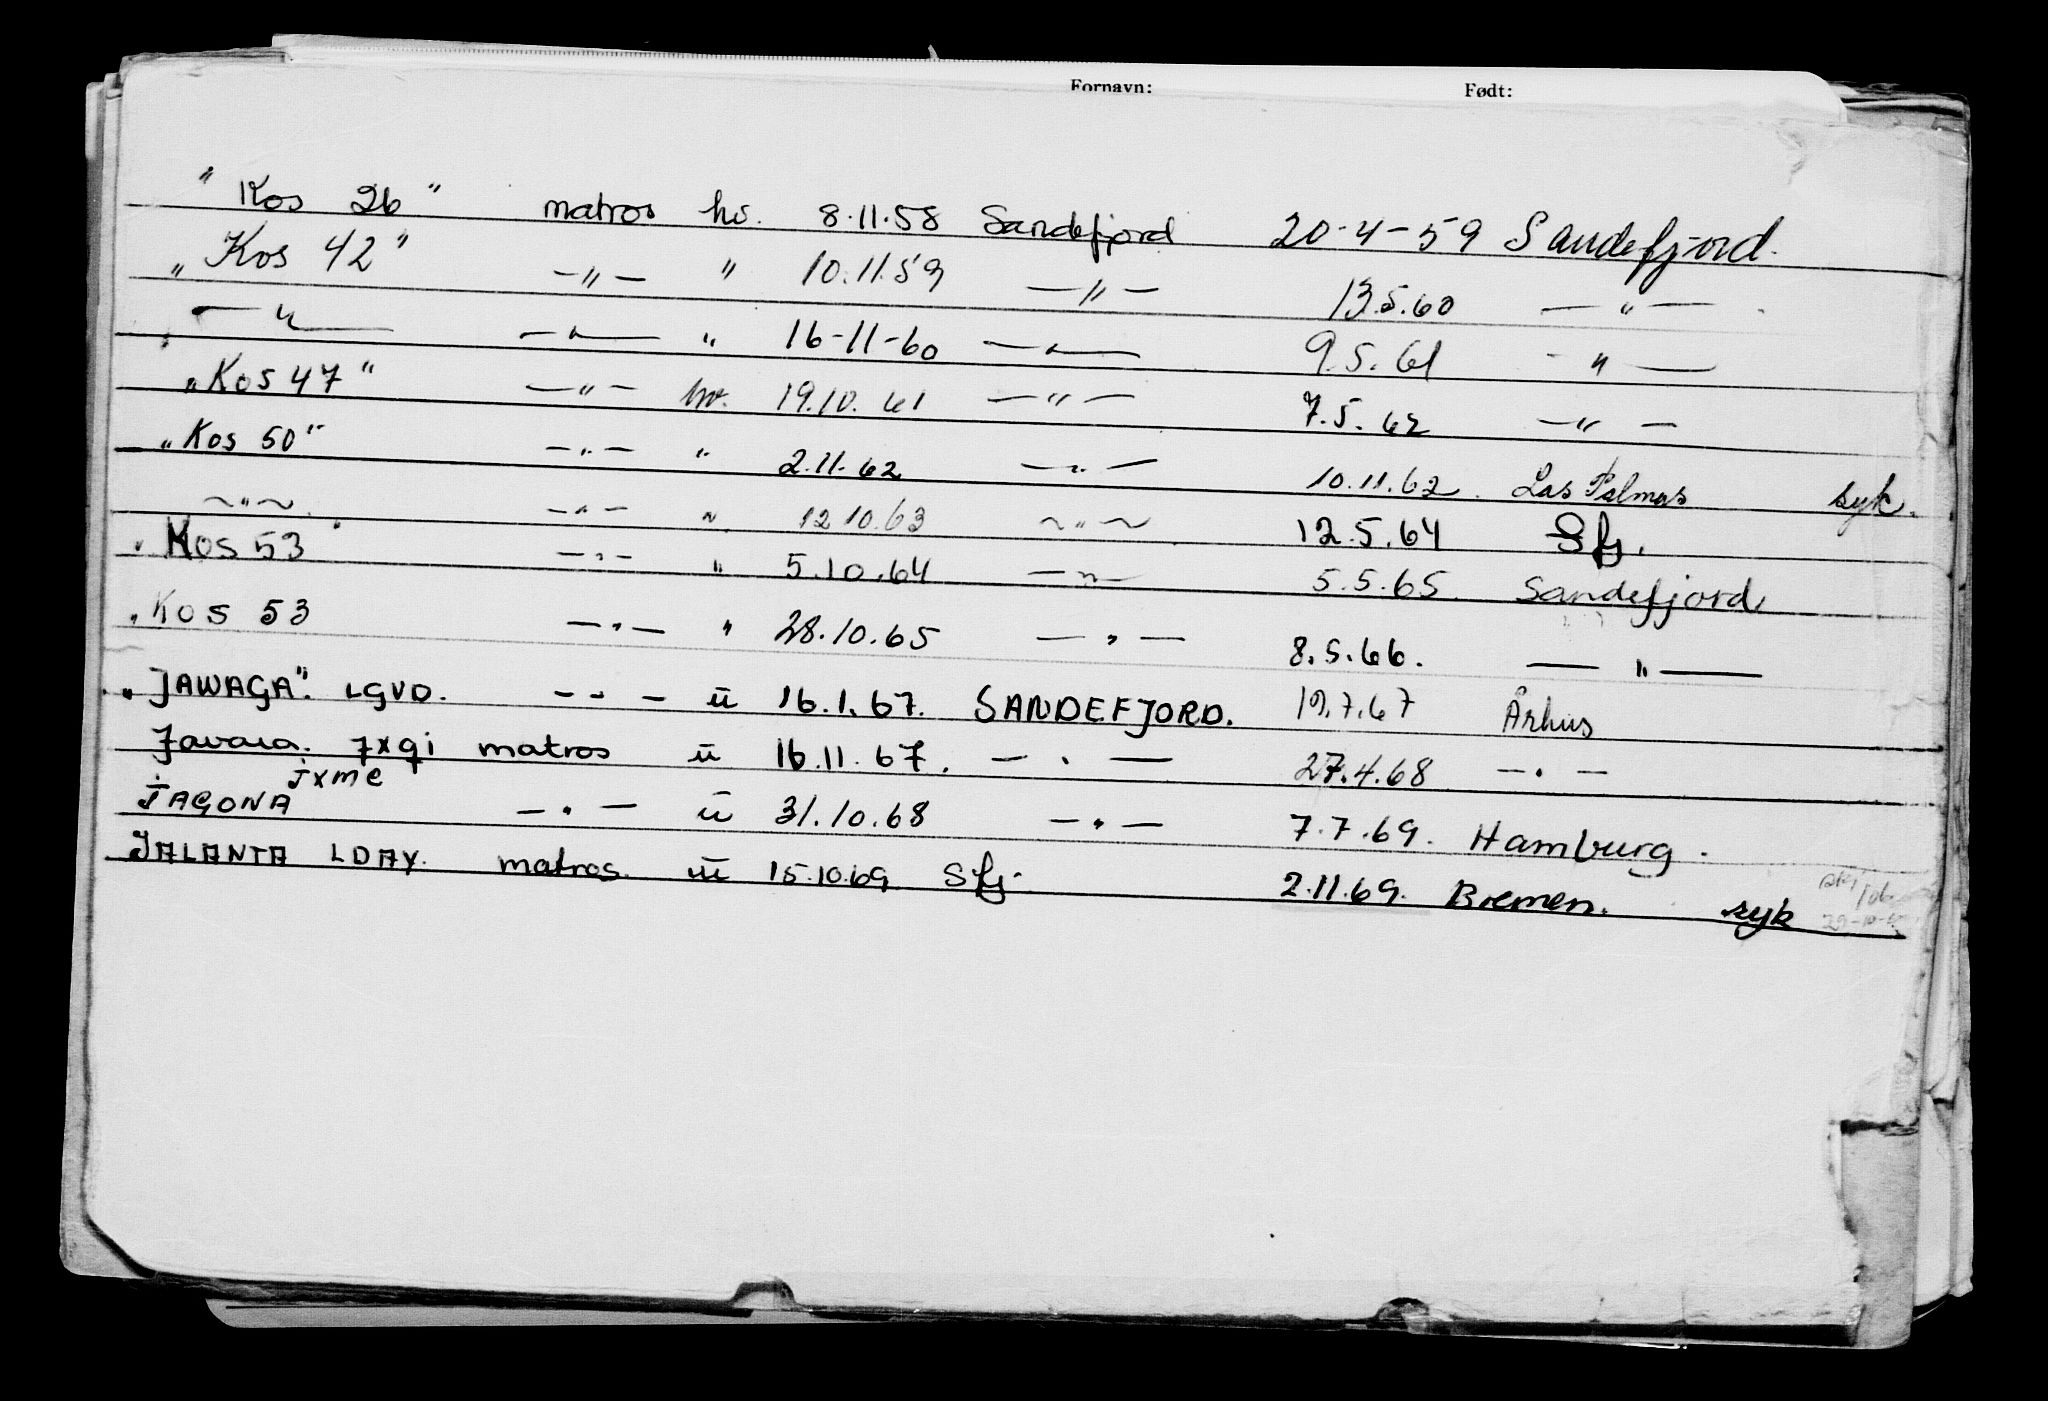 Fornavn: Født:
"Kos 26" matros hv. 8.11.58 Sandefjord 20-4-59 Sandefjord.
"Kos 42" —"— " 10.11.59 —"— 13.5.60 —"—
—"— —"— " 16-11-60 —"— 9.5.61 —"—
"Kos 47" —"— hv. 19.10.61 —"— 7.5.62 —"—
"Kos 50" —"— " 2.11.62 —"— 10.11.62. Las Palmas syk.
—"— —"— " 12.10.63 —"— 12.5.64 Sfj.
"Kos 53" —"— " 5.10.64 —"— 5.5.65. Sandefjord
"Kos 53 —"— " 28.10.65 —"— 8.5.66. —"—
"JAWAGA". LGVD. —"— u 16.1.67. SANDEFJORD. 19.7.67 Århus
Javara. jxqi matros u 16.11.67. —"— 27.4.68 —"—
JAGONA jxme —"— u 31.10.68 —"— 7.7.69. Hamburg.
JALANTA LDAY. matros. u 15.10.69 Sfj. 2.11.69. Bremen. syk